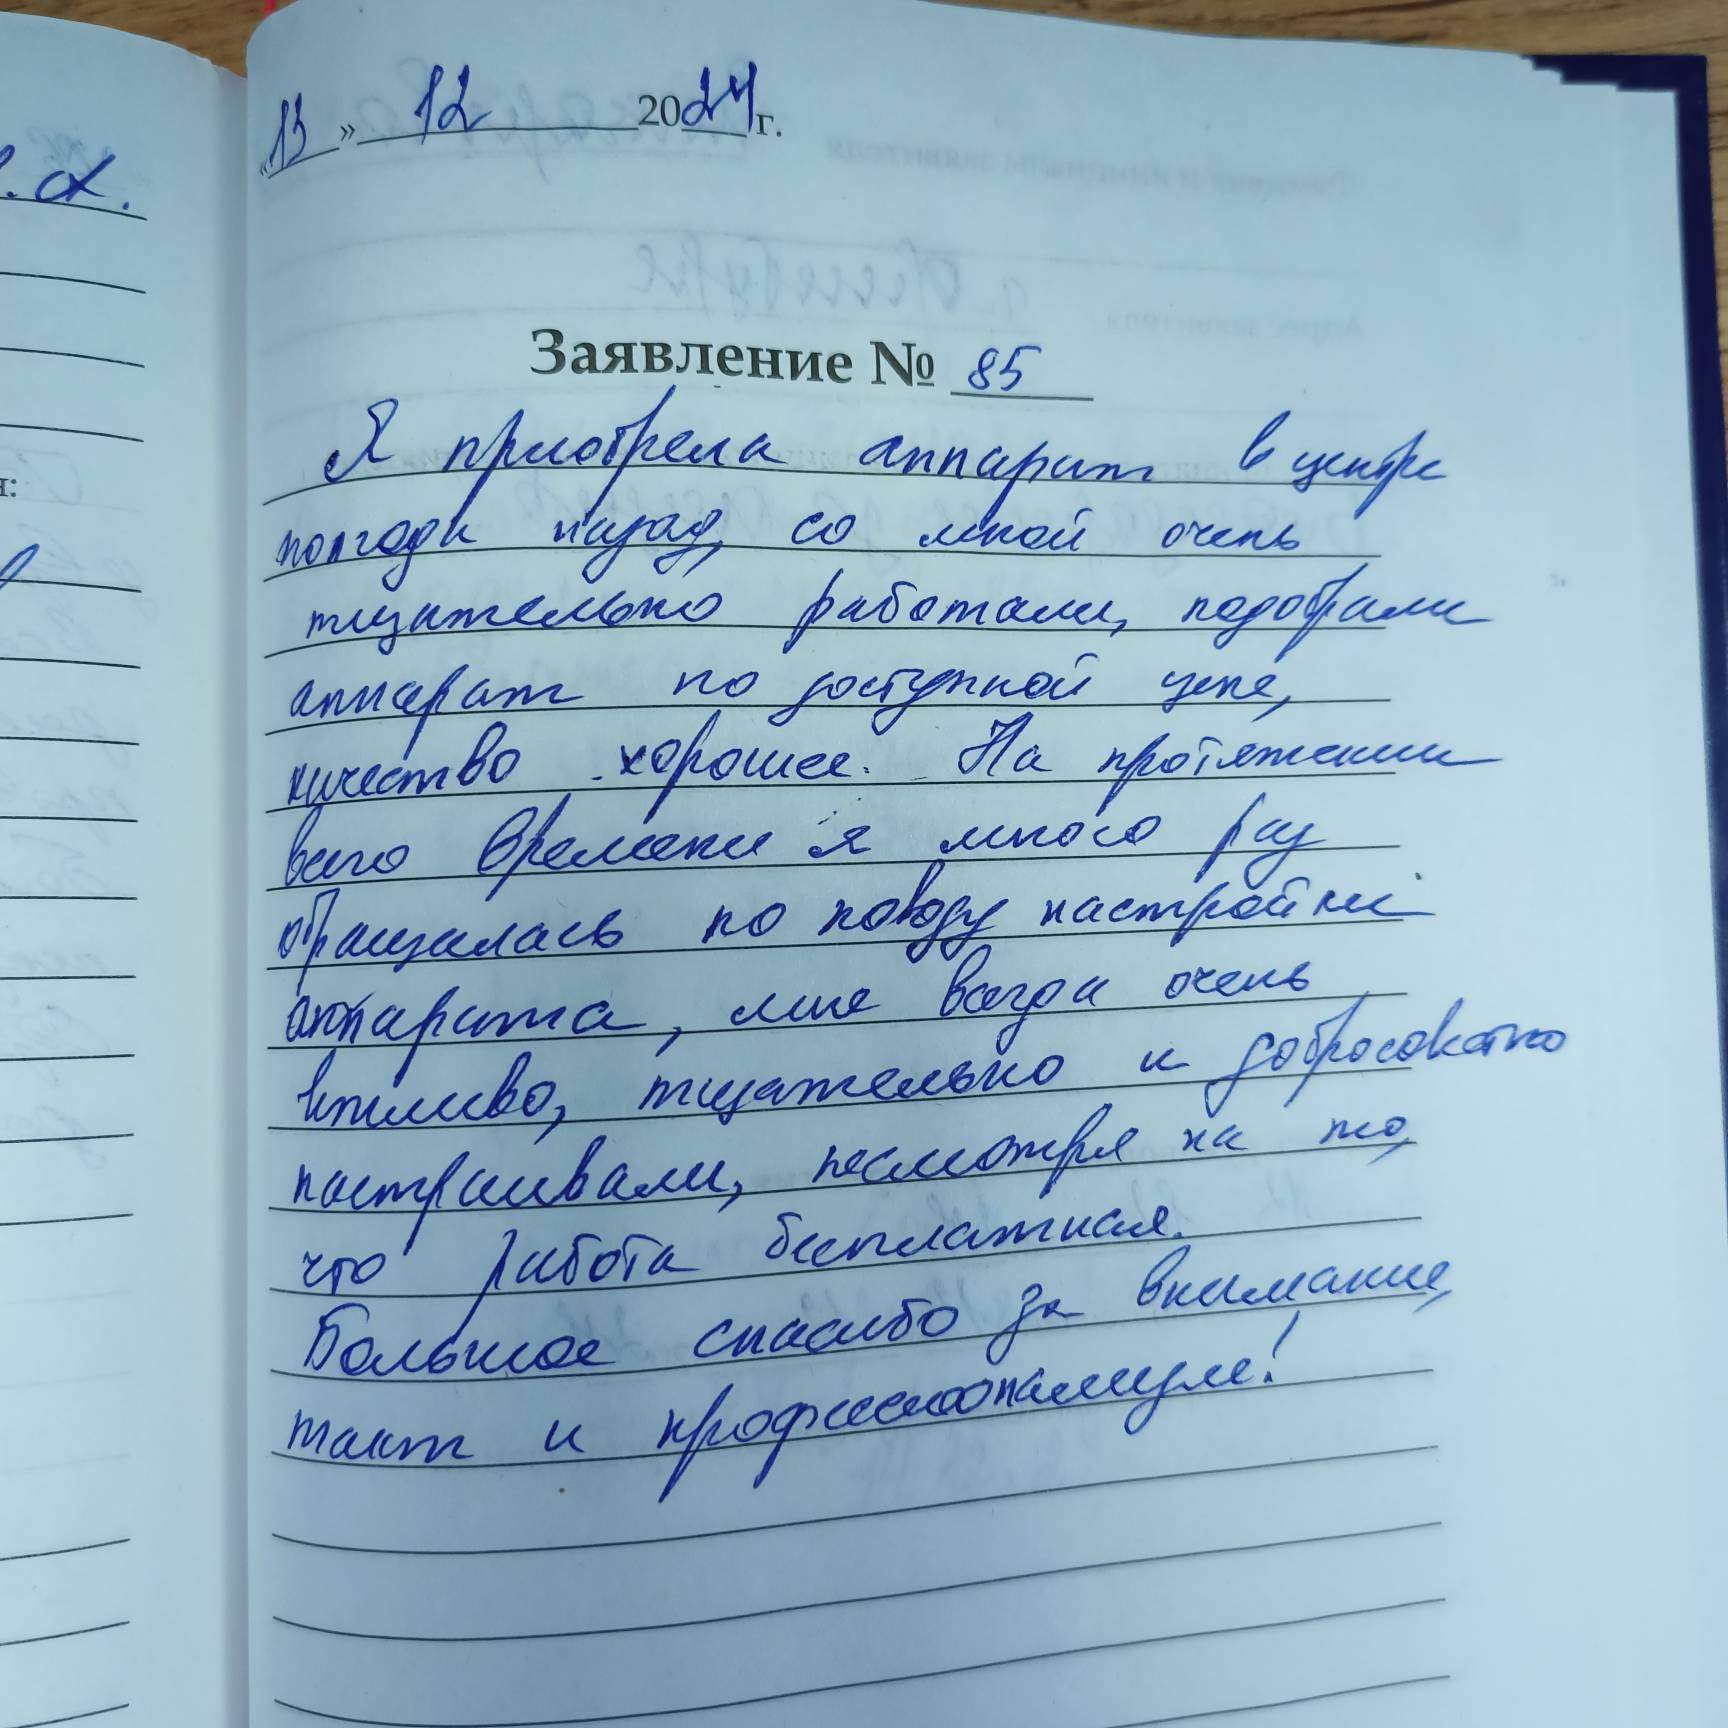 «13» 12 2024 г.
Заявление № 85
Я приобрела аппарат в центре
полгода назад, со мной очень
тщательно работали, подобрали
аппарат по доступной цене,
качество хорошее. На протяжении
всего времени я много раз
обращалась по поводу настройки
аппарата, мне всегда очень
вежливо, тщательно и добросовестно
настраивали, несмотря на то,
что работа бесплатная.
Большое спасибо за внимание,
такт и профессионализм!